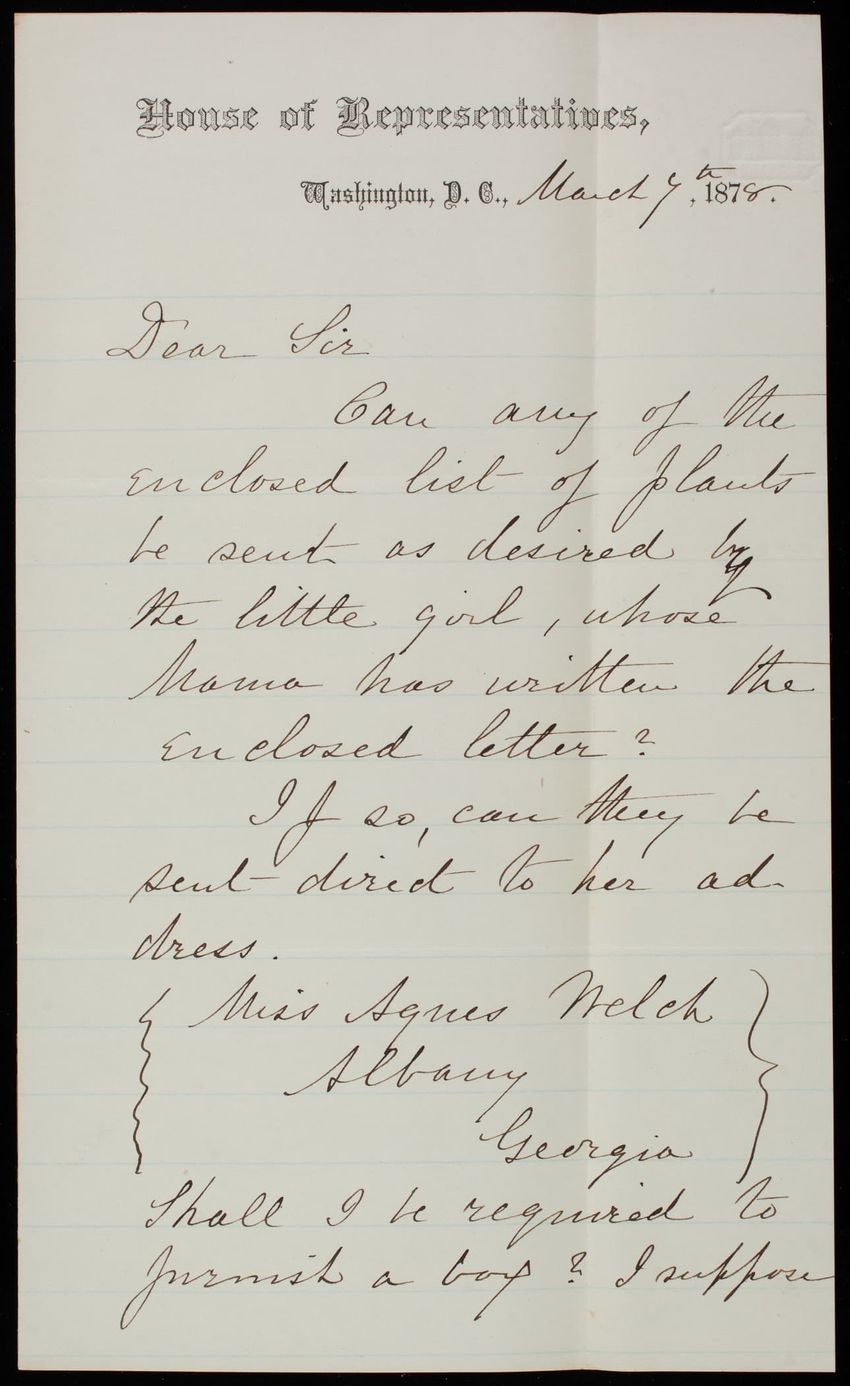 House of Representatives,
Washington, D. C., March 7th, 1878.
Dear Sir
Can any of the
enclosed list of plants
be sent as desired by
the little girl, whose
Mama has written the
enclosed letter?
If so, can they be
sent direct to her ad-
dress.
Miss Agnes Welch
Albany
Georgia
Shall I be required to
furnish a box? I suppose